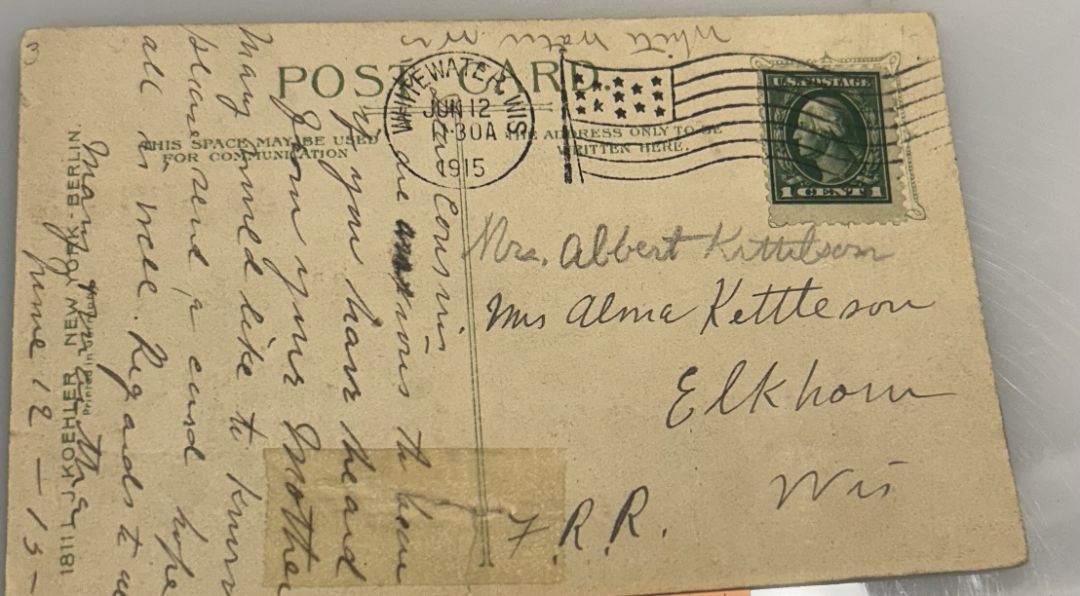 White water Wis
POST CARD.
WHITEWATER, WIS
JUN 12
1915
U.S. POSTAGE
1 CENT 1
THIS SPACE MAY BE USED
FOR COMMUNICATION
THE ADDRESS ONLY TO BE
WRITTEN HERE.
Mrs. Albert Kittelson
Mrs Alma Kettleson
Elkhorn
Wis
R.R.
Dear Cousin
We are to hear
if you have heard
from your Mother
Mary would like to know
please send a card hope
all is well. Regards to
June 12 - 15 -
1811 L. J. KOEHLER, NEW YORK - BERLIN.
Printed in